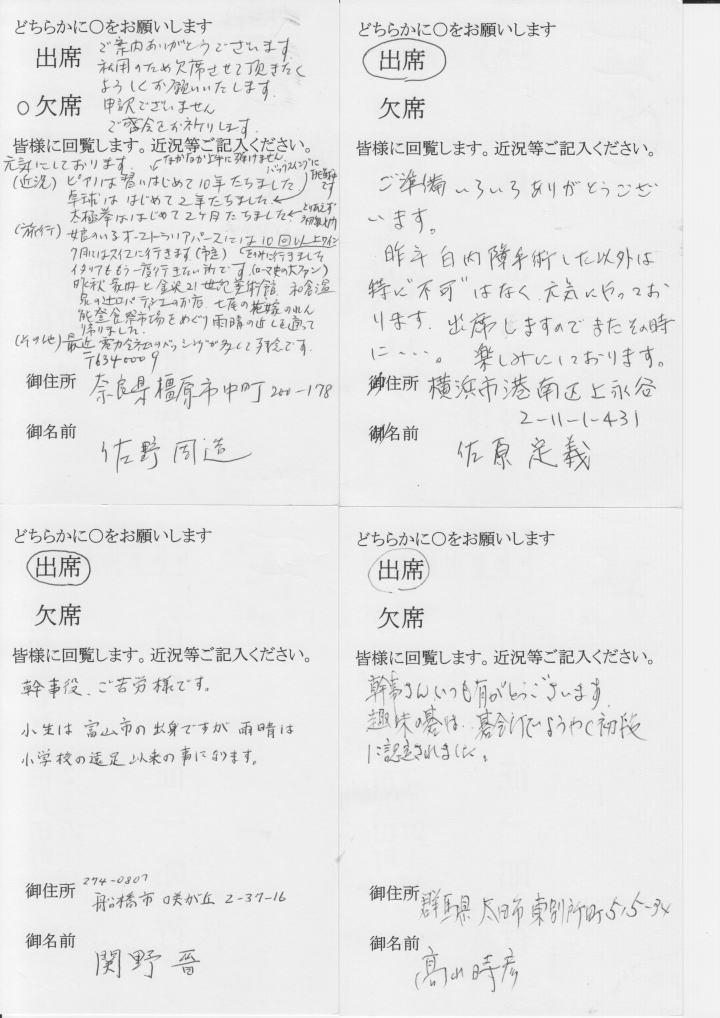 どちらかに〇をお願いします
出席
ご案内ありがとうございます
私用のため欠席させて頂きたく
よろしくお願いいたします。
〇欠席
申訳ございません
ご盛会をお祈りします。
皆様に回覧します。近況等ご記入ください。
元気にしております。
なかなか上手に弾けません
バックスイングに
挑戦中
です
(近況) ピアノは習いはじめて10年たちました
卓球は はじめて2年たちました
太極拳は、はじめて2ヶ月たちました
とりあえず
(旅行) 娘のいるオーストラリアパースには10回以上
7月にはスイスに行きます(予定)
イタリアももう一度行きたい所です。(ローマ史の大ファン)
昨秋家内と金沢21世紀美術館、和倉温
泉の辻口パティシエのお店 七尾の花嫁のれん
能登食祭市場をめぐり雨晴の近くを通って
帰りました
(その他) 最近 電力会社のバッシングが多くて残念です。
〒6340009
御住所 奈良県橿原市中町200-178
御名前 佐野周造
どちらかに〇をお願いします
出席
欠席
皆様に回覧します。近況等ご記入ください。
ご準備いろいろありがとうござ
います。
昨年白内障手術した以外は
特に"不可"はなく、元気にやってお
ります。出席しますのでまたその時
に・・・。 楽しみにしております。
御住所 横浜市港南区上永谷
2-11-1-431
御名前 佐原定義
どちらかに〇をお願いします
出席
欠席
皆様に回覧します。近況等ご記入ください。
幹事役、ご苦労様です。
小生は 富山市の出身ですが 雨晴は
小学校の遠足以来の事になります。
274-0807
御住所 船橋市咲が丘 2-37-16
御名前 関野 晋
どちらかに〇をお願いします
出席
欠席
皆様に回覧します。近況等ご記入ください。
幹事さんいつも有がとうございます。
趣味の碁は、碁会所でようやく初段
に認定されました。
御住所 群馬県太田市東別所町515-34
御名前 高山時彦